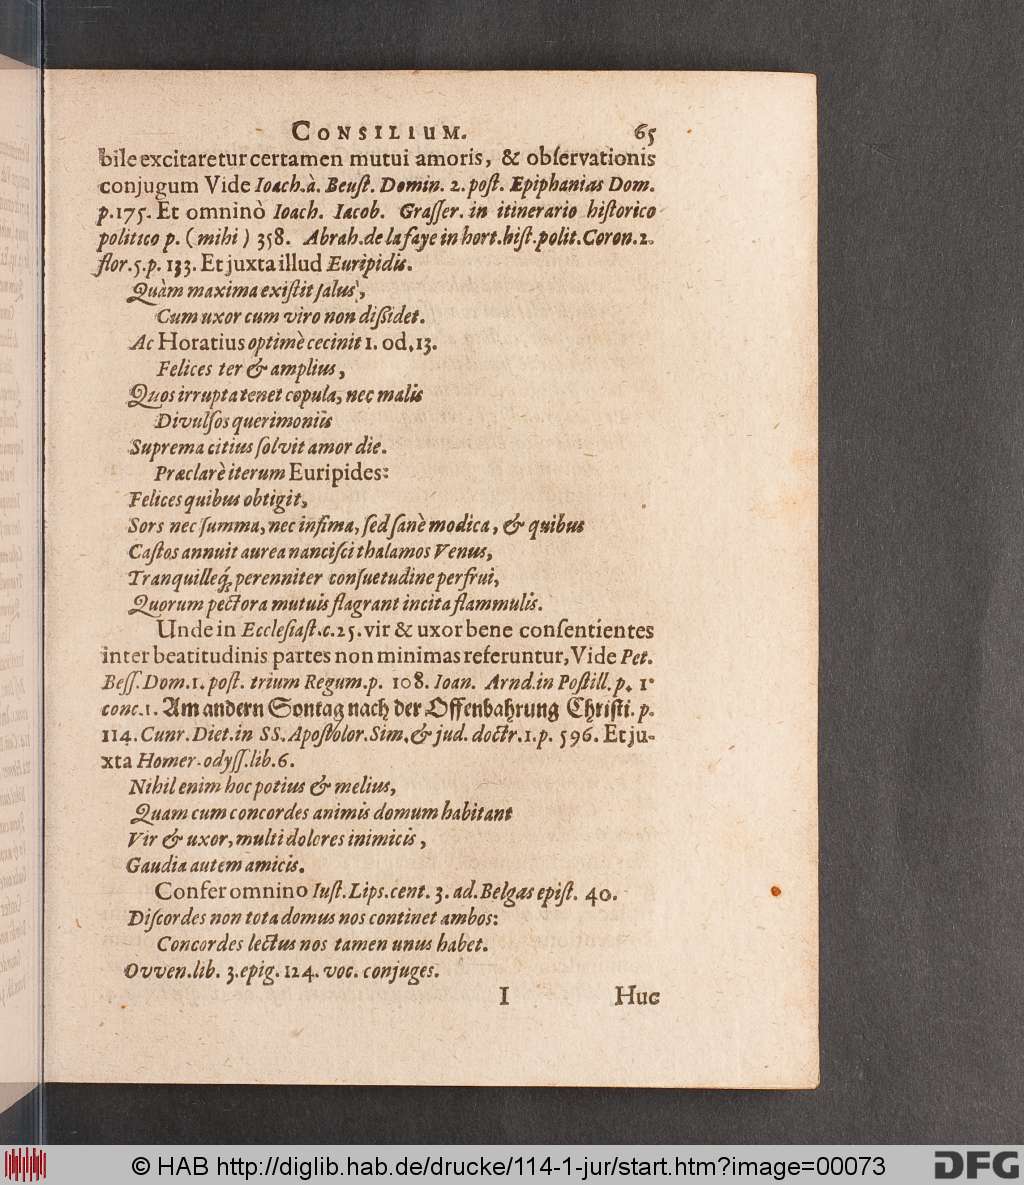 CONSILIUM. 65
bile excitaretur certamen mutui amoris, & obſervationis
conjugum Vide Ioach. à. Beuſt. Domin. 2. poſt. Epiphanias Dom.
p. 175. Et omninò Ioach. Iacob. Graſſer. in itinerario hiſtorico
politico p. (mihi) 358. Abrah. de la faye in hort. hiſt. polit. Coron. 2.
flor. 5. p. 133. Et juxta illud Euripidis.
Quàm maxima exiſtit ſalus,
Cum uxor cum viro non diſſidet.
Ac Horatius optimè cecinit 1. od. 13.
Felices ter & amplius,
Quos irrupta tenet copula, nec malis
Divulſos querimoniis
Suprema citius ſolvit amor die.
Præclarè iterum Euripides:
Felices quibus obtigit,
Sors nec ſumma, nec infima, ſed ſanè modica, & quibus
Caſtos annuit aurea nanciſci thalamos Venus,
Tranquilleq́; perenniter conſuetudine perfrui,
Quorum pectora mutuis flagrant incita flammulis.
Unde in Eccleſiaſt. c. 25. vir & uxor bene conſentientes
inter beatitudinis partes non minimas referuntur, Vide Pet.
Beſſ. Dom. 1. poſt. trium Regum. p. 108. Ioan. Arnd. in Poſtill. p. 1.
conc. 1. Am andern Sontag nach der Offenbahrung Chriſti. p.
114. Cunr. Diet. in SS. Apoſtolor. Sim. & jud. doctr. 1. p. 596. Et ju-
xta Homer. odyſſ. lib. 6.
Nihil enim hoc potius & melius,
Quam cum concordes animis domum habitant
Vir & uxor, multi dolores inimicis,
Gaudia autem amicis.
Confer omnino Iuſt. Lips. cent. 3. ad. Belgas epiſt. 40.
Diſcordes non tota domus nos continet ambos:
Concordes lectus nos tamen unus habet.
Ovven. lib. 3. epig. 124. voc. conjuges.
I Huc
© HAB http://diglib.hab.de/drucke/114-1-jur/start.htm?image=00073 DFG